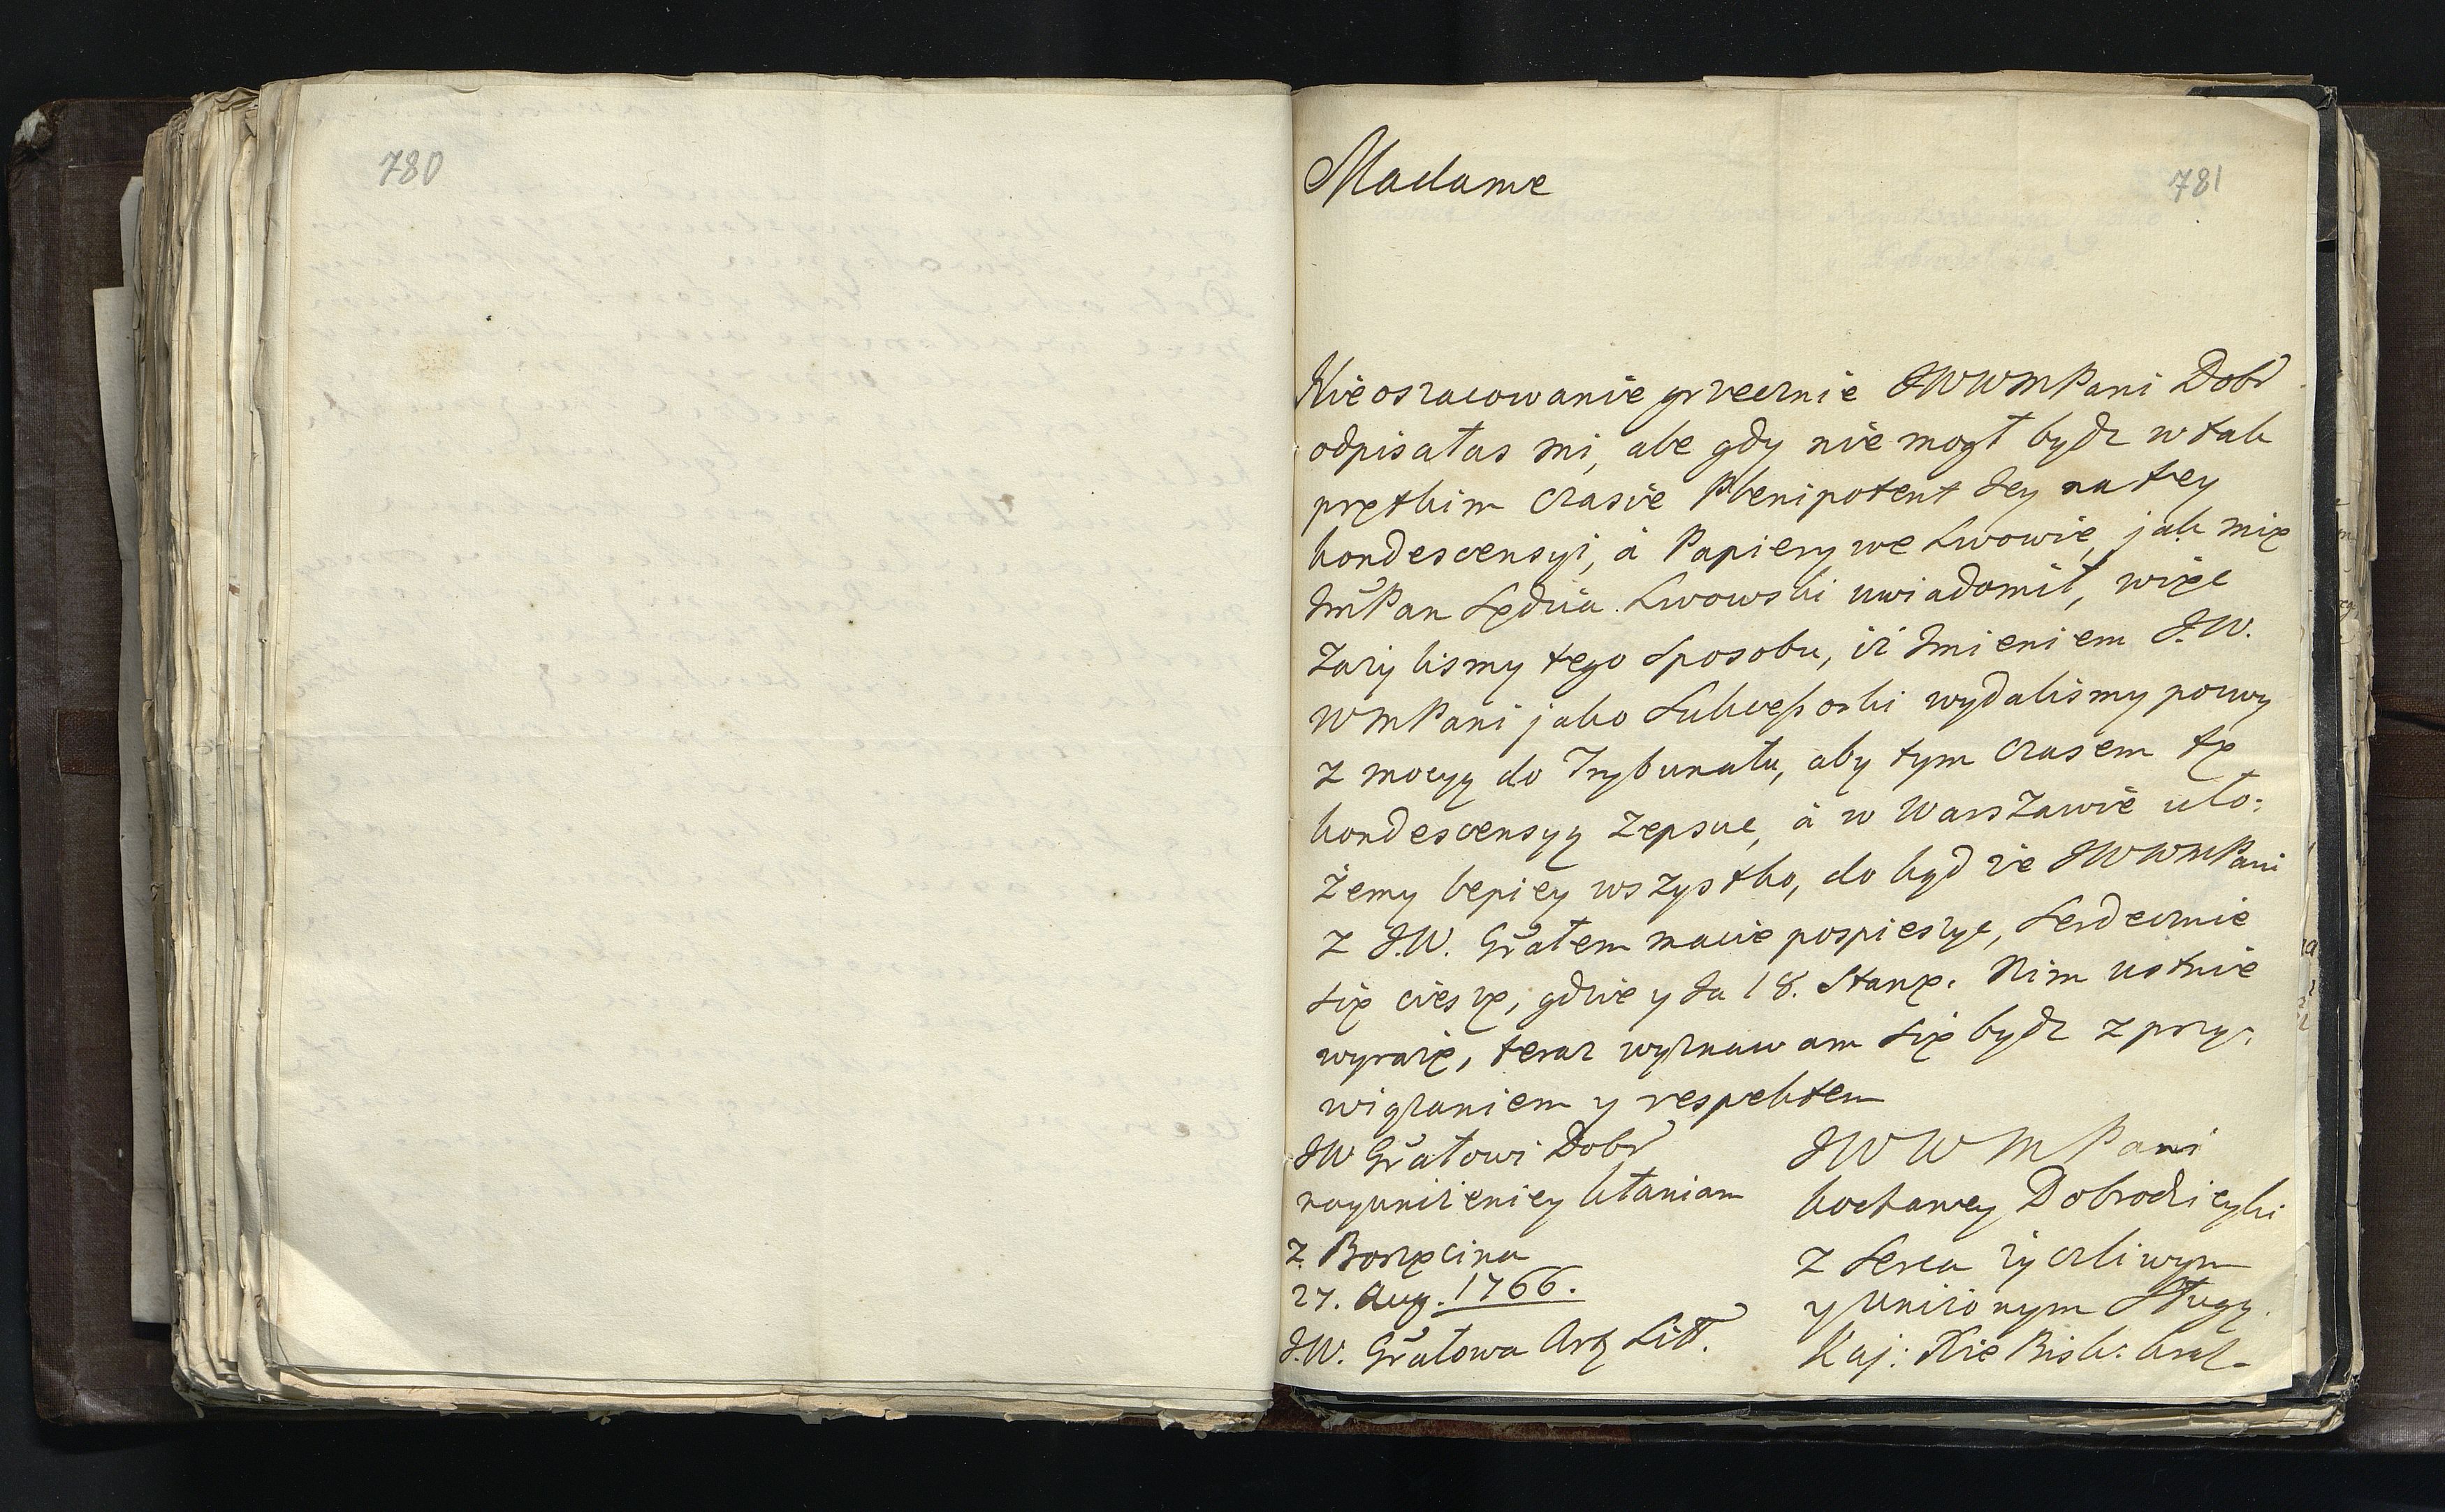 780
781
Madame
Nieoszacowanie grzecznie JWWMPani Dobr
odpisałas mi, ale gdy nie mogł bydz w tak
prętkim czasie Plenipotent Jey na tey
kondescensyi, á Papiery we Lwowie, jak mię
JmPan Sędzia Lwowski uwiadomił, więc
Zażylismy tego Sposobu, iż Jmieniem J.W.
WMPani jako Sukcessorki wydalismy pozwy
z mocyą do Trybunału, aby tym czasem tę
kondescensyą Zepsuc, á w Warszawie uło:
żemy lepiey wszystko, dokąd że JWWMPani
z J.W. Grałem macie pospieszyc, Serdecznie
się cieszę, gdzie y Ja 18. Stanę. Nim ustnie
wyrażę, teraz wyznawam się bydz z przy:
wiązaniem y respektem
JW Grałowi Dobr
nayuniżeniey kłaniam
z Borzęcina
27. Aug. 1766.
J.W. Grałowa Art Litt.
JWWMPani
kochaney Dobrodzieyki
z Serca życzliwym
y Uniżonym Sługą.
Kaj: